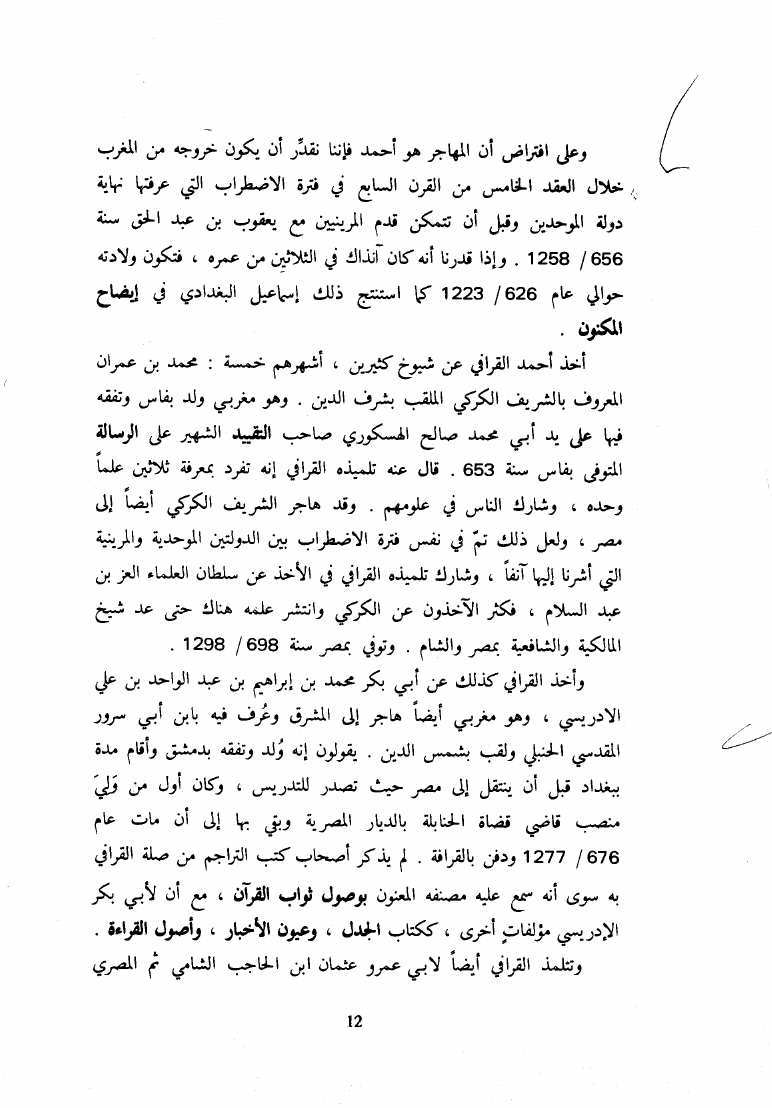 وعلى افتراض أن المهاجر هو أحمد فإننا نقدِّر أن يكون خروجه من المغرب
خلال العقد الخامس من القرن السابع في فترة الاضطراب التي عرفتها نهاية
دولة الموحدين وقبل أن تتمكن قدم المرينيين مع يعقوب بن عبد الحق سنة
656 / 1258 . وإذا قدرنا أنه كان آنذاك في الثلاثين من عمره ، فتكون ولادته
حوالي عام 626/ 1223 كما استنتج ذلك إسماعيل البغدادي في إيضاح
المكنون .
أخذ أحمد القرافي عن شيوخ كثيرين ، أشهرهم خمسة : محمد بن عمران
المعروف بالشريف الكركي الملقب بشرف الدين . وهو مغربي ولد بفاس وتفقه
فيها على يد أبي محمد صالح الهسكوري صاحب التقييد الشهير على الرسالة
المتوفى بفاس سنة 653 . قال عنه تلميذه القرافي إنه تفرد بمعرفة ثلاثين علماً
وحده ، وشارك الناس في علومهم . وقد هاجر الشريف الكركي أيضاً إلى
مصر ، ولعل ذلك تمّ في نفس فترة الاضطراب بين الدولتين الموحدية والمرينية
التي أشرنا إليها آنفاً ، وشارك تلميذه القرافي في الأخذ عن سلطان العلماء العز بن
عبد السلام ، فكثر الآخذون عن الكركي وانتشر علمه هناك حتى عد شيخ
المالكية والشافعية بمصر والشام . وتوفي بمصر سنة 698 / 1298 .
وأخذ القرافي كذلك عن أبي بكر محمد بن إبراهيم بن عبد الواحد بن علي
الادريسي ، وهو مغربي أيضاً هاجر إلى المشرق وعُرف فيه بابن أبي سرور
المقدسي الحنبلي ولقب بشمس الدين . يقولون إنه وُلد وتفقه بدمشق وأقام مدة
ببغداد قبل أن ينتقل إلى مصر حيث تصدر للتدريس ، وكان أول من وَلِيَ
منصب قاضي قضاة الحنابلة بالديار المصرية وبقي بها إلى أن مات عام
676/ 1277 ودفن بالقرافة . لم يذكر أصحاب كتب التراجم من صلة القرافي
به سوى أنه سمع عليه مصنفه المعنون بوصول ثواب القرآن ، مع أن لأبي بكر
الإدريسي مؤلفاتٍ أخرى ، ككتاب الجدل ، وعيون الأخبار ، وأصول القراءة .
وتتلمذ القرافي أيضاً لابي عمرو عثمان ابن الحاجب الشامي ثم المصري
12